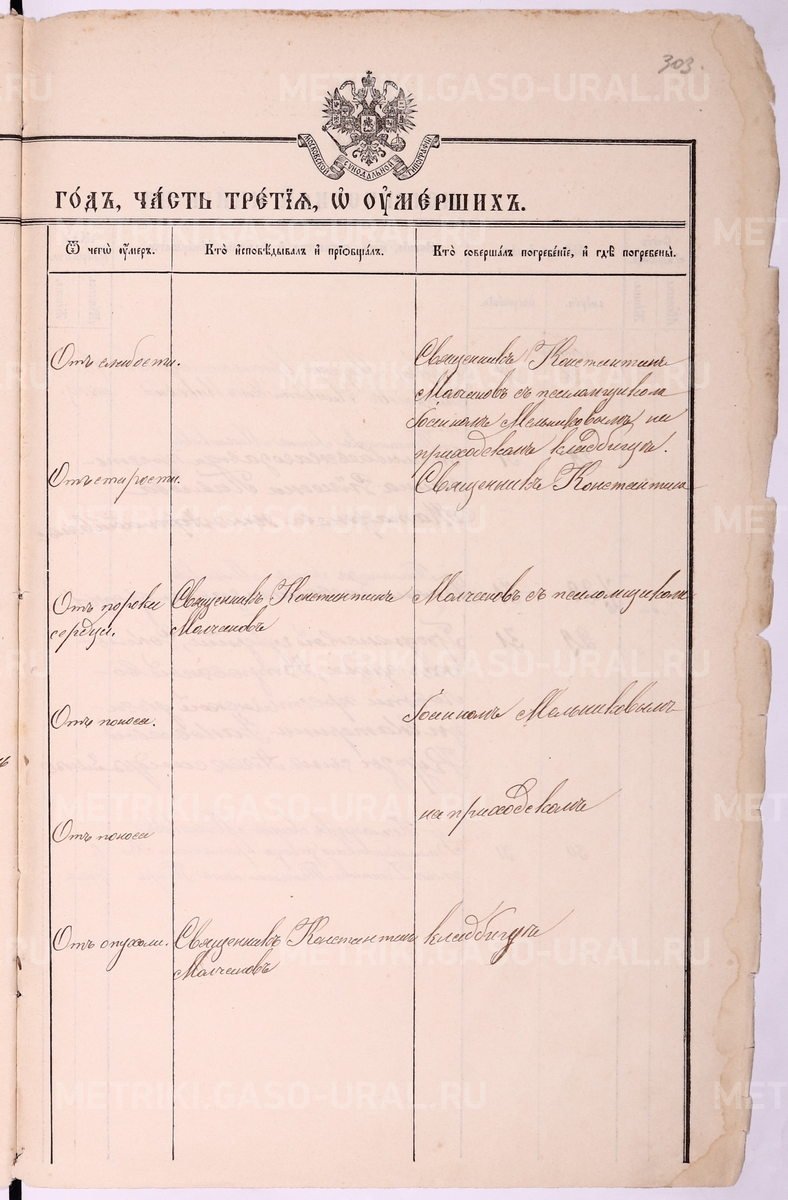 303.
МОСКОВСКОЙ СѴНОДАЛЬНОЙ ТИПОГРАФІИ
ГОДЪ, ЧАСТЬ ТРЕТІЯ, Ѡ ОУМЕРШИХЪ.
Ѿ чегѡ оумеръ.
Кто исповѣдывалъ и пріобщалъ.
Кто совершалъ погребеніе, и гдѣ погребены.
Отъ слабости.
Священникъ Константинъ
Молчановъ съ псаломщикомъ
Мельниковымъ на
приходскомъ кладбищѣ.
Отъ старости.
Священникъ Константинъ
Отъ порока
сердца.
Священникъ Константинъ
Молчановъ
Молчановъ съ псаломщикомъ
Отъ поноса.
Мельниковымъ
Отъ поноса
на приходскомъ
Отъ опухоли.
Священникъ Константинъ
Молчановъ
кладбищѣ
METRIKI.GASO-URAL.RU